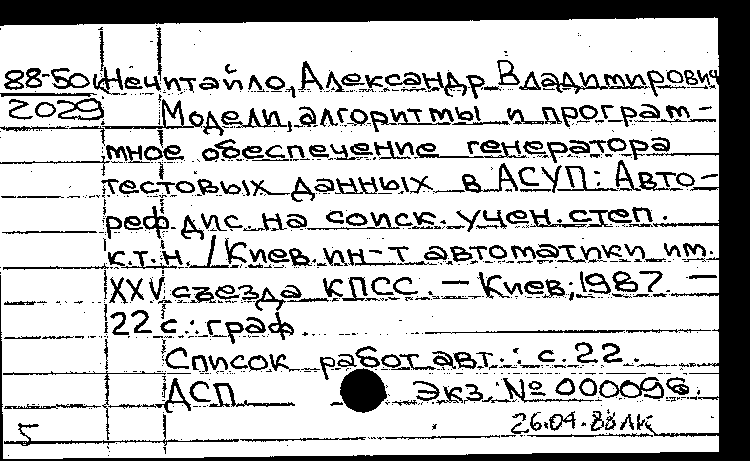 88-50к Нечитайло, Александр Владимирович
2029 Модели, алгоритмы и програм-
мное обеспечение генератора
тестовых данных в АСУП: Авто-
реф. дис. на соиск. учен. степ.
к.т.н. / Киев. ин-т автоматики им.
XXV съезда КПСС. — Киев, 1987. —
22 с.: граф.
Список работ авт.: с. 22.
ДСП. Экз. № 000096.
5 26.04.88 ЛК